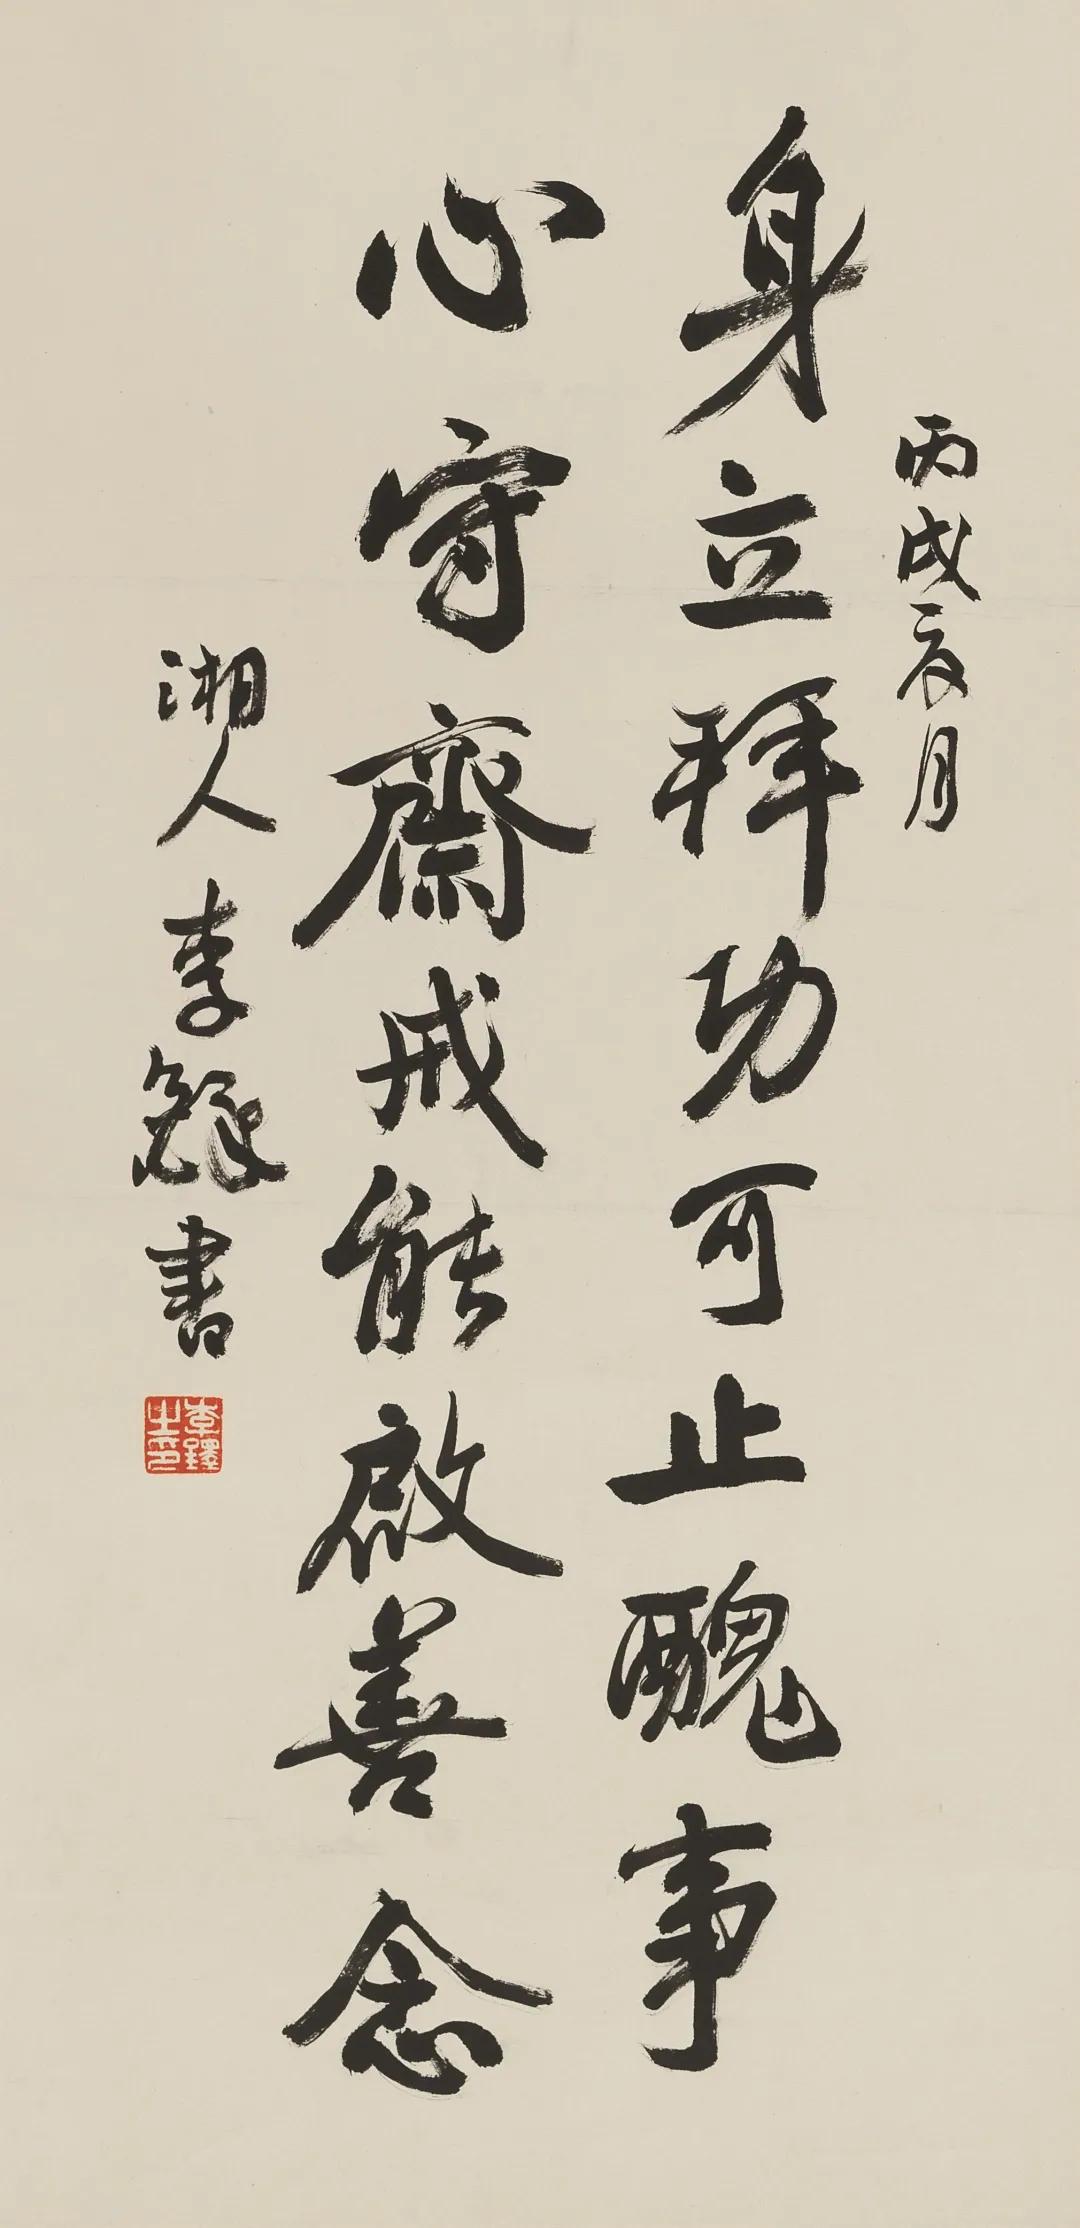 丙戌辰月
身立拜功可止醜事
心守齋戒能啟善念
湘人李鐸書
李鐸之印